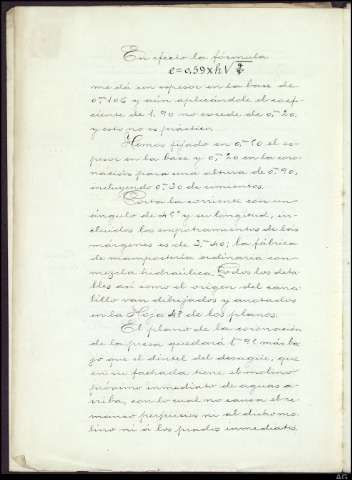 En efecto la fórmula
e = 0,59 x h √
me dá un espesor en la base de
0,m106 y aún aplicándole el coefi-
ciente de 1.90 no excede de 0,m20
y esto no es práctico.
Hemos fijado en 0,m50 el es-
pesor en la base y 0,m20 en la coro-
nación para una altura de 0,m90,
incluyendo 0,m30 de cimientos.
Corta la corriente con un
ángulo de y su longitud, in-
cluidos los empotramientos de las
márgenes es de 40; la fábrica
de mampostería ordinaria con
mezcla hidráulica. Todos los deta-
lles así como el origen del cana-
lillo van dibujados y anotados
en la Hoja 4ª de los planos.
El plano de la coronación
de la presa quedará más ba-
jo que el dintel del desagüe, que
en su fachada tiene el molino
próximo inmediato de aguas a-
rriba, con lo cual no causa el re-
manso perjuicios ni al dicho mo-
lino ni á los prados inmediatos